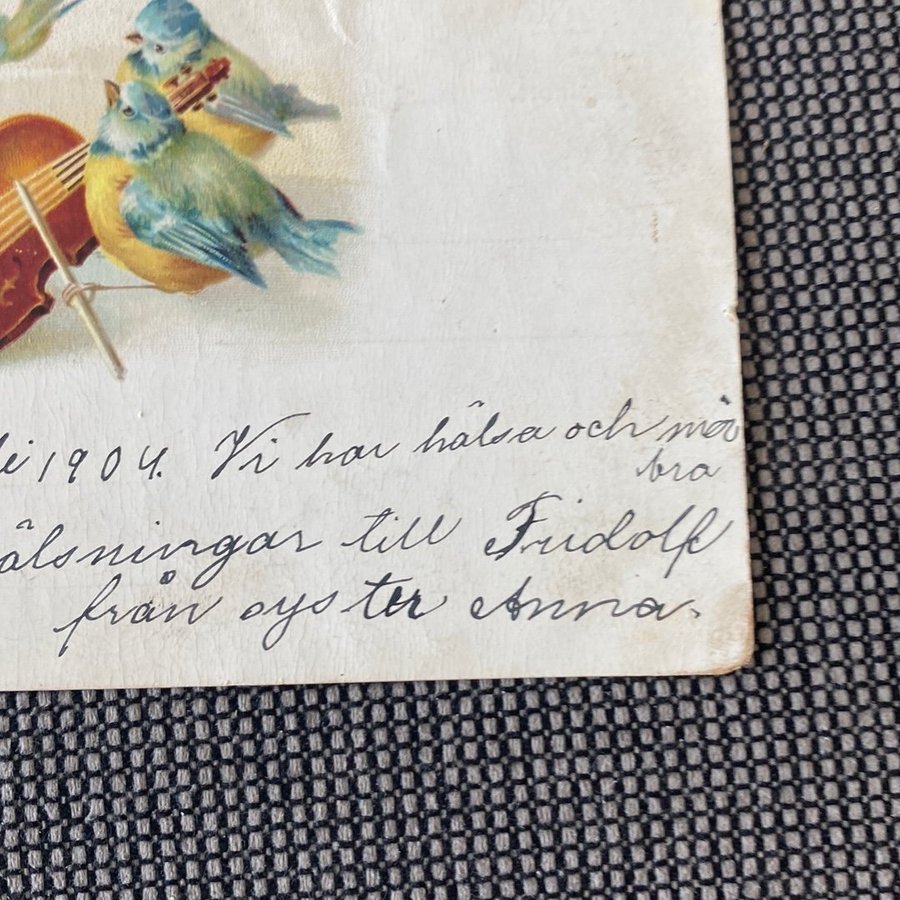 li 1904. Vi har hälsa och mår
bra
älsningar till Fridolf
från syster Anna.